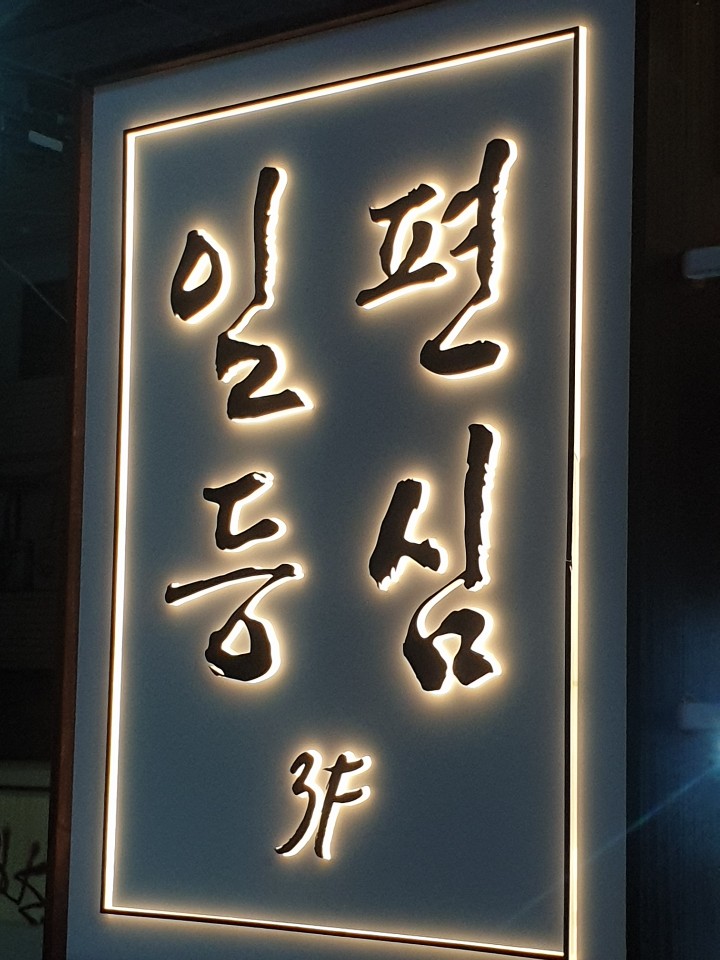 일편
등심
3F